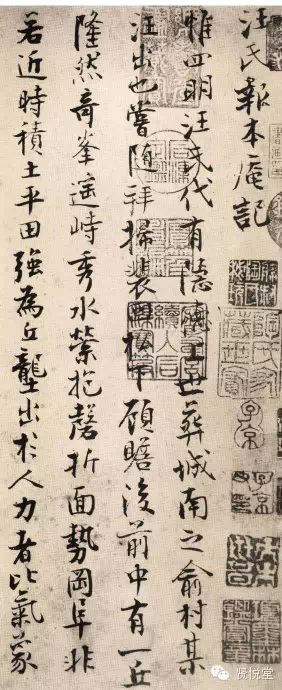 汪氏報本庵記
惟四明汪氏代有隱德上世葬城南之俞村某
汪出也嘗隨拜掃裴回松下顧瞻後前中有一丘
隆然奇峯遙峙秀水縈抱磬折面勢岡阜非
若近時積土平田強為丘壟出於人力者比氣象
子京
贤悦堂